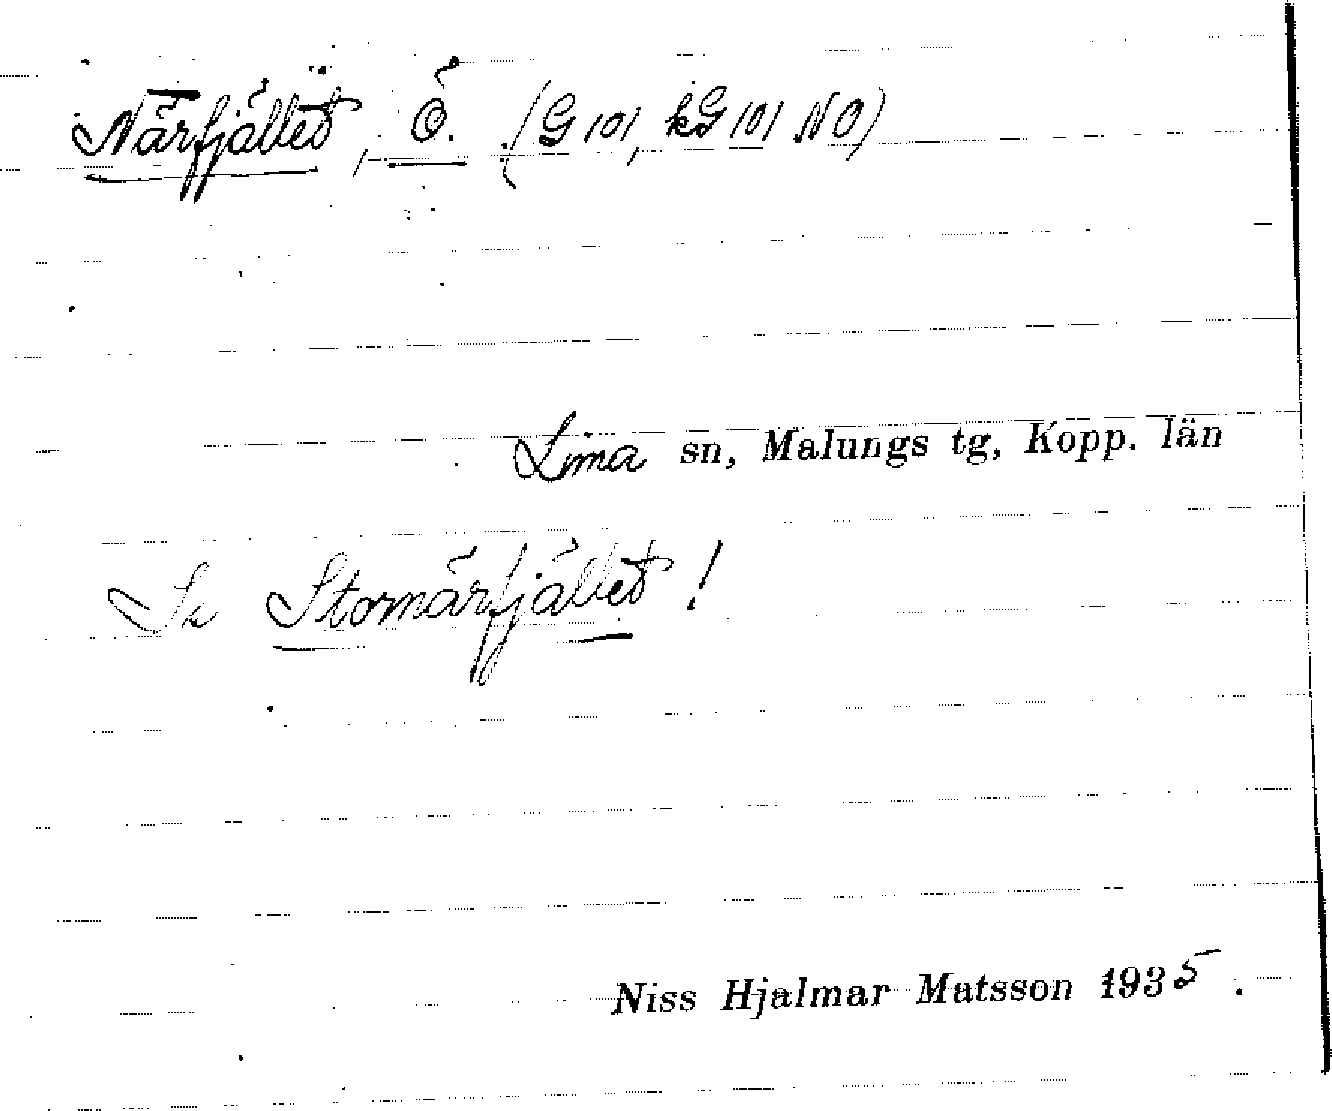 Närfjället, Ö. (G 101, kG 101 NO)
Lima sn, Malungs tg, Kopp. län
Se Stornärfjället!
Niss Hjalmar Matsson 1935.